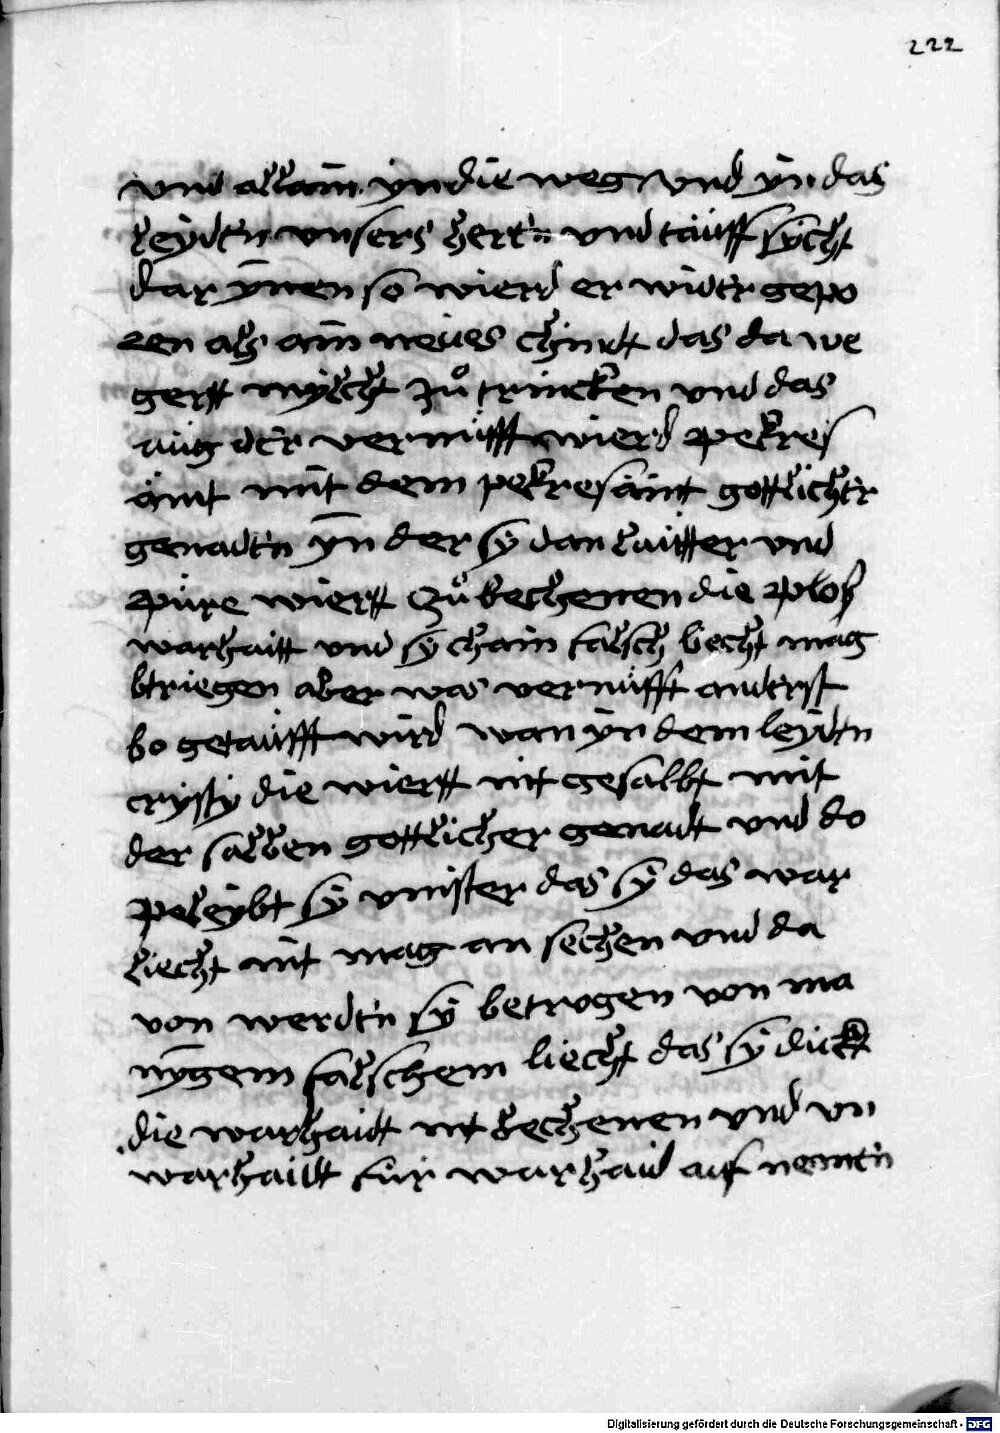 222
vnd allain yn die weg vnd yn das
leydtn vnsers hertn vnd tauff sych
dar ynen so wierd er widtr gepo
ren als ain neues chindt das da we
gertt mylch zů trincken vnd das
aug dtr vernufft wierd pekres
amt mit dem pekresamt gottlichtr
genadtn yn der sy dan lautter vnd
pure wiertt zů bechenen die plos
warhaitt vnd sy chain falsch liecht mag
btriegen aber was vernufft andtrst
bo getaufft wird wan yn dem leydtn
crysty die wiertt nit gesalbt mit
der salben gottlicher genadt vnd do
peleybt sy vinster das sy das war
liecht nit mag an sechen vnd da
von werdtn sy betrogen von ma
nygem falschem liecht das sy dick
die warhaidt nit bechenen vnd vn
warhaidt fur warhaid auf nemtn
Digitalisierung gefördert durch die Deutsche Forschungsgemeinschaft - DFG